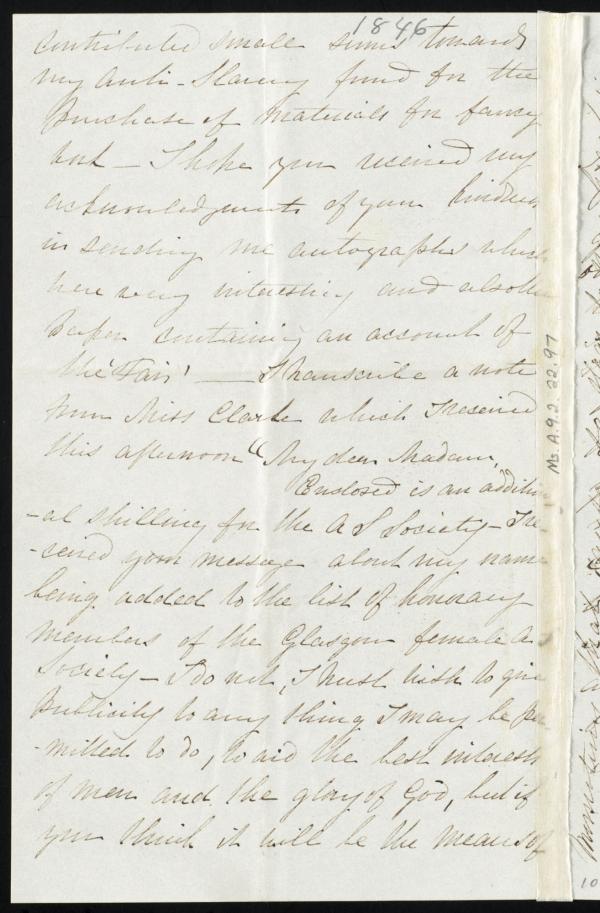 1846
contributed small sums towards
my Anti-Slavery fund for the
purchase of materials for fancy
work - I hope you received my
acknowledgments of your kindness
in sending me autographs which
were very interesting and also the
Paper containing an account of
the 'Fair' — I transcribe a note
from Miss Clark which I received
this afternoon "My dear Madam,
Enclosed is an addition
-al shilling for the A S Society - I re
-ceived your message about my name
being added to the list of honorary
members of the Glasgow female A S
Society - I do not, I trust wish to give
publicity to any thing I may be per
-mitted to do, to aid the best interests
of men and the glory of God, but if
you think it will be the means of
Ms. A. 9. 2. 22. 97
10